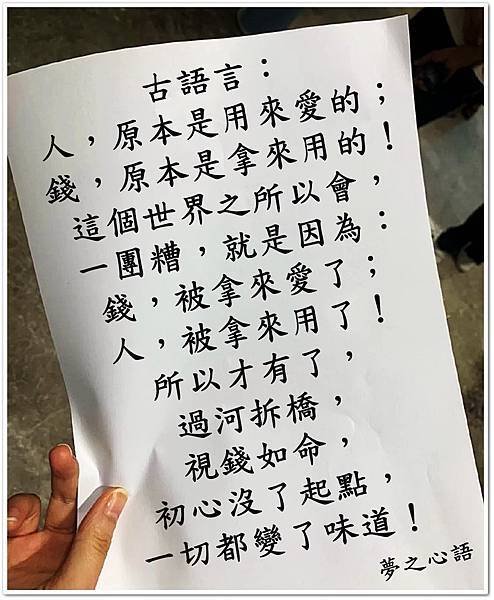 古語言：
人，原本是用來愛的；
錢，原本是拿來用的！
這個世界之所以會，
一團糟，就是因為：
錢，被拿來愛了；
人，被拿來用了！
所以才有了，
過河拆橋，
視錢如命，
初心沒了起點，
一切都變了味道！
夢之心語